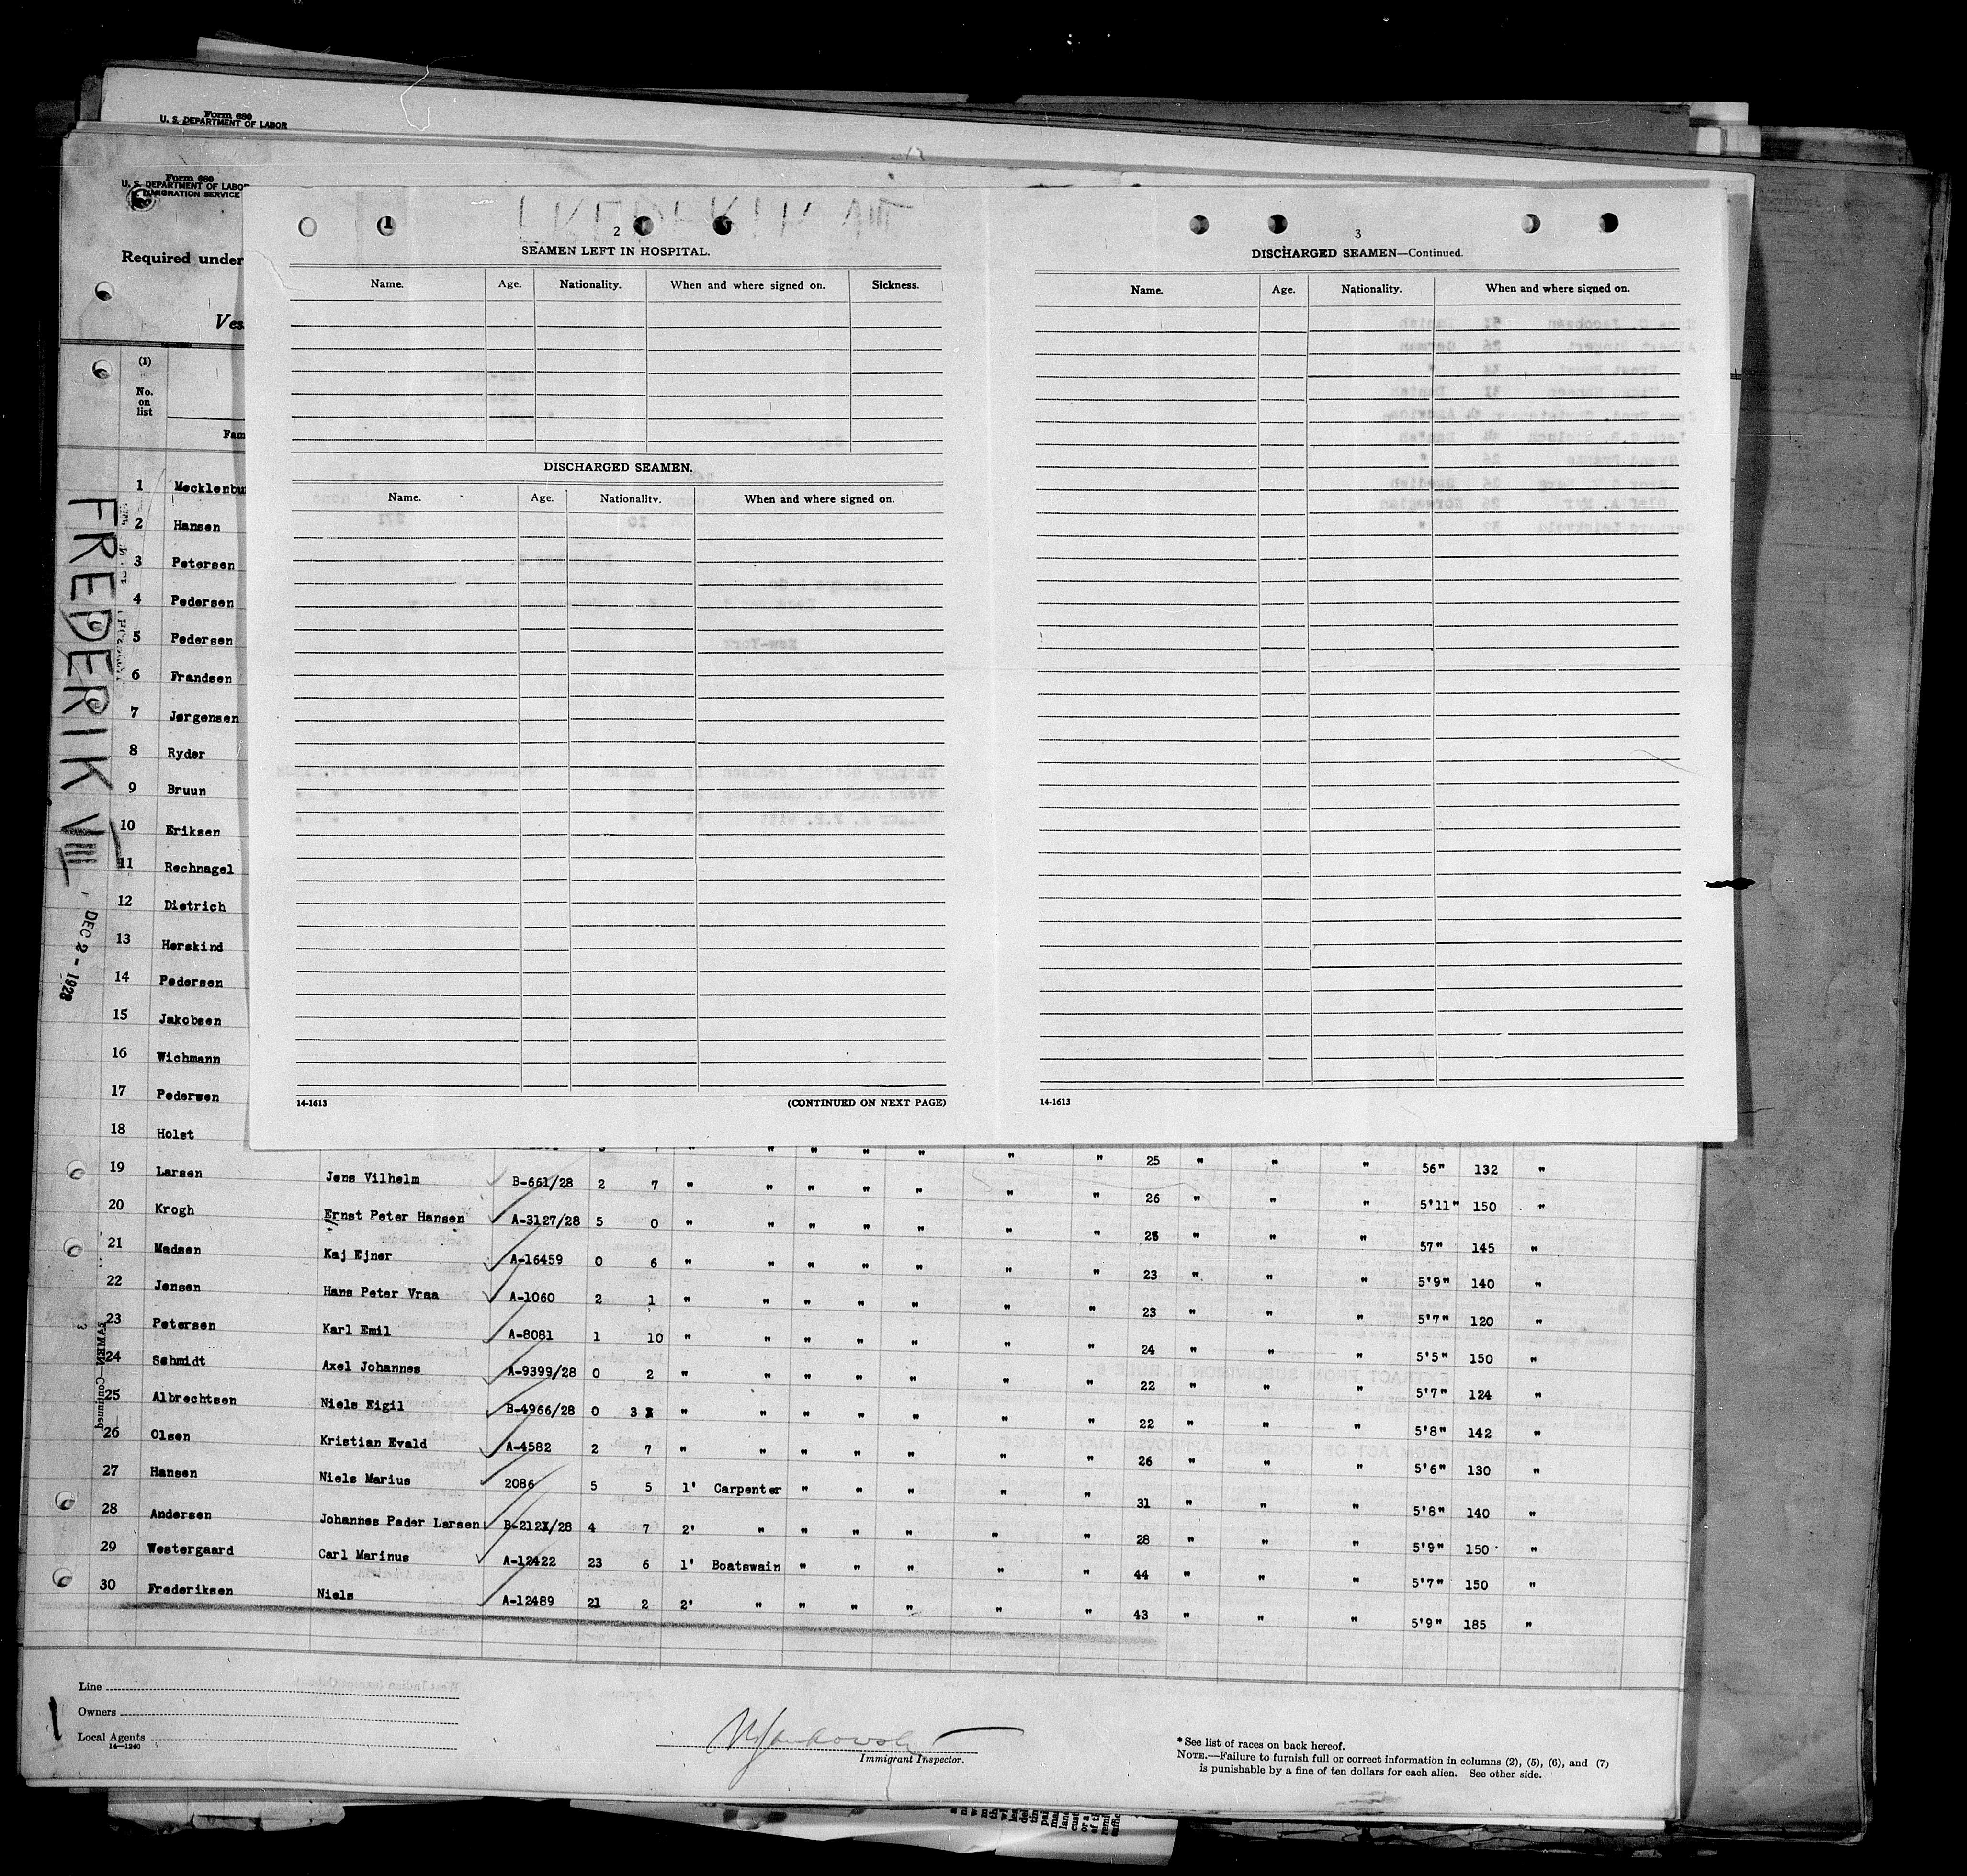 Form 680
U. S. DEPARTMENT OF LABOR
Form 680
U. S. DEPARTMENT OF LABOR
IMMIGRATION SERVICE
Required under
(1)
No.
on
list
FREDERIK VIII
2
SEAMEN LEFT IN HOSPITAL.
Name. Age. Nationality. When and where signed on. Sickness.
DISCHARGED SEAMEN.
Name. Age. Nationality. When and where signed on.
14-1613 (CONTINUED ON NEXT PAGE)
3
DISCHARGED SEAMEN—Continued.
Name. Age. Nationality. When and where signed on.
14-1613
FREDERIK VIII
DEC 2 - 1928
1 Mecklenbu
2 Hansen
3 Petersen
4 Pedersen
5 Pedersen
6 Frandsen
7 Jørgensen
8 Ryder
9 Bruun
10 Eriksen
11 Rechnagel
12 Dietrich
13 Herskind
14 Pedersen
15 Jakobsen
16 Wichmann
17 Pederwen
18 Holst " " " " " " 25 " " " 56" 132 "
19 Larsen Jens Vilhelm B-661/28 2 7 " " " " " " " 26 " " " 5'11" 150 "
20 Krogh Ernst Peter Hansen A-3127/28 5 0 " " " " " " " 28 " " " 57" 145 "
21 Madsen Kaj Ejner A-16459 0 6 " " " " " " " 23 " " " 5'9" 140 "
22 Jensen Hans Peter Vraa A-1060 2 1 " " " " " " " 23 " " " 5'7" 120 "
23 Petersen Karl Emil A-8081 1 10 " " " " " " " 24 " " " 5'5" 150 "
24 Schmidt Axel Johannes A-9399/28 0 2 " " " " " " " 22 " " " 5'7" 124 "
25 Albrechtsen Niels Eigil B-4966/28 0 3 " " " " " " " 22 " " " 5'8" 142 "
26 Olsen Kristian Evald A-4582 2 7 " " " " " " " 26 " " " 5'6" 130 "
27 Hansen Niels Marius 2086 5 5 1' Carpenter " " " " " 31 " " " 5'8" 140 "
28 Andersen Johannes Peder Larsen B-212X/28 4 7 2' " " " " " " 28 " " " 5'9" 150 "
29 Westergaard Carl Marinus A-12422 23 6 1' Boatswain " " " " " 44 " " " 5'7" 150 "
30 Frederiksen Niels A-12489 21 2 2' " " " " " " 43 " " " 5'9" 185 "
SAMEN—Continued
3
Line
Owners
Local Agents
14—1240
Immigrant Inspector.
* See list of races on back hereof.
NOTE.—Failure to furnish full or correct information in columns (2), (5), (6), and (7)
is punishable by a fine of ten dollars for each alien. See other side.